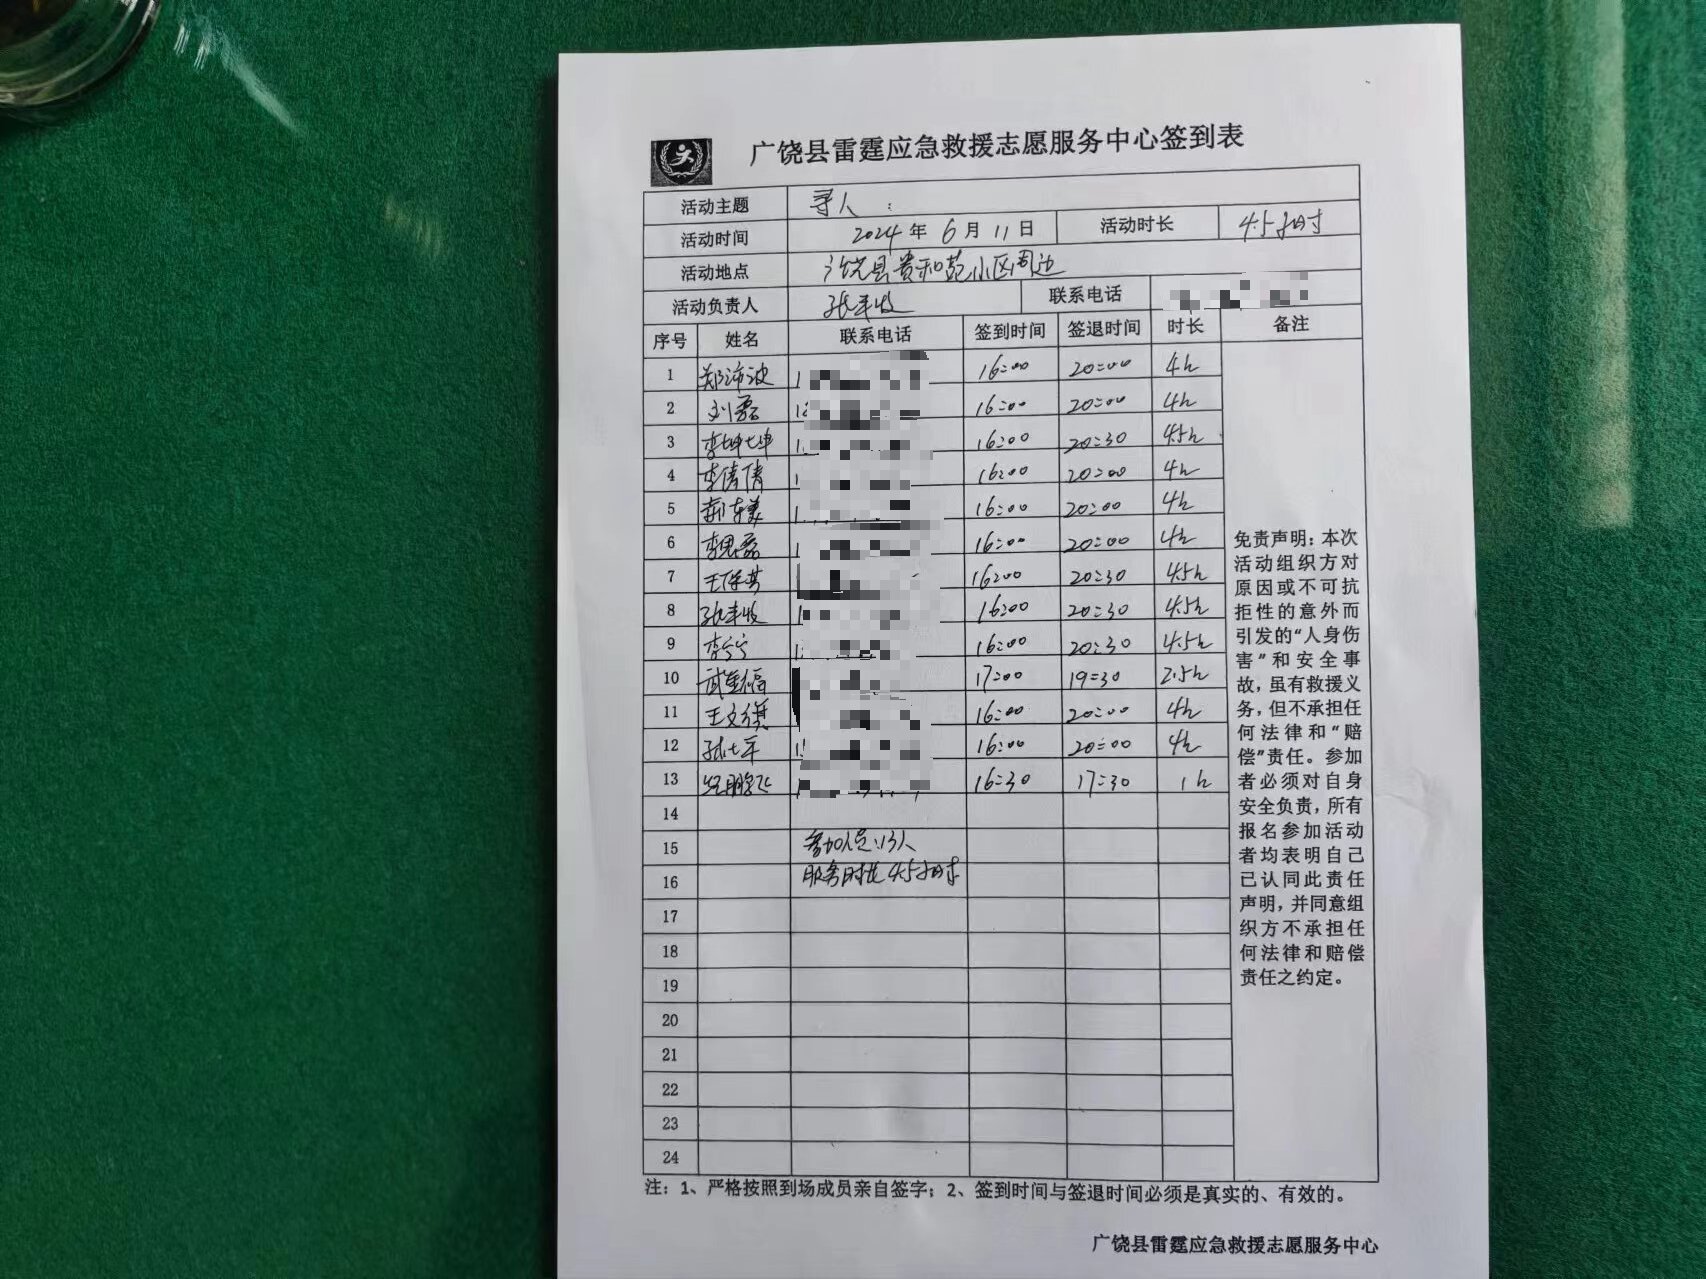 广饶县雷霆应急救援志愿服务中心签到表
活动主题 寻人：
活动时间 2024年6月11日 活动时长 4.5小时
活动地点 广饶县贵和苑小区周边
活动负责人 张丰收 联系电话
序号 姓名 联系电话 签到时间 签退时间 时长 备注
1 郑沛波 16:00 20:00 4h
2 刘磊 16:00 20:00 4h
3 李坤坤 16:00 20:30 4.5h
4 李倩倩 16:00 20:00 4h
5 16:00 20:00 4h
6 李思磊 16:00 20:00 4h
7 16:00 20:30 4.5h
8 张丰收 16:00 20:30 4.5h
9 李宁宁 16:00 20:30 4.5h
10 17:00 19:30 2.5h
11 16:00 20:00 4h
12 16:00 20:00 4h
13 16:30 17:30 1h
14
15 参加人员:13人
16 服务时长4.5小时
17
18
19
20
21
22
23
24
免责声明：本次
活动组织方对
原因或不可抗
拒性的意外而
引发的“人身伤
害”和安全事
故，虽有救援义
务，但不承担任
何法律和“赔
偿”责任。参加
者必须对自身
安全负责，所有
报名参加活动
者均表明自己
已认同此责任
声明，并同意组
织方不承担任
何法律和赔偿
责任之约定。
注：1、严格按照到场成员亲自签字；2、签到时间与签退时间必须是真实的、有效的。
广饶县雷霆应急救援志愿服务中心